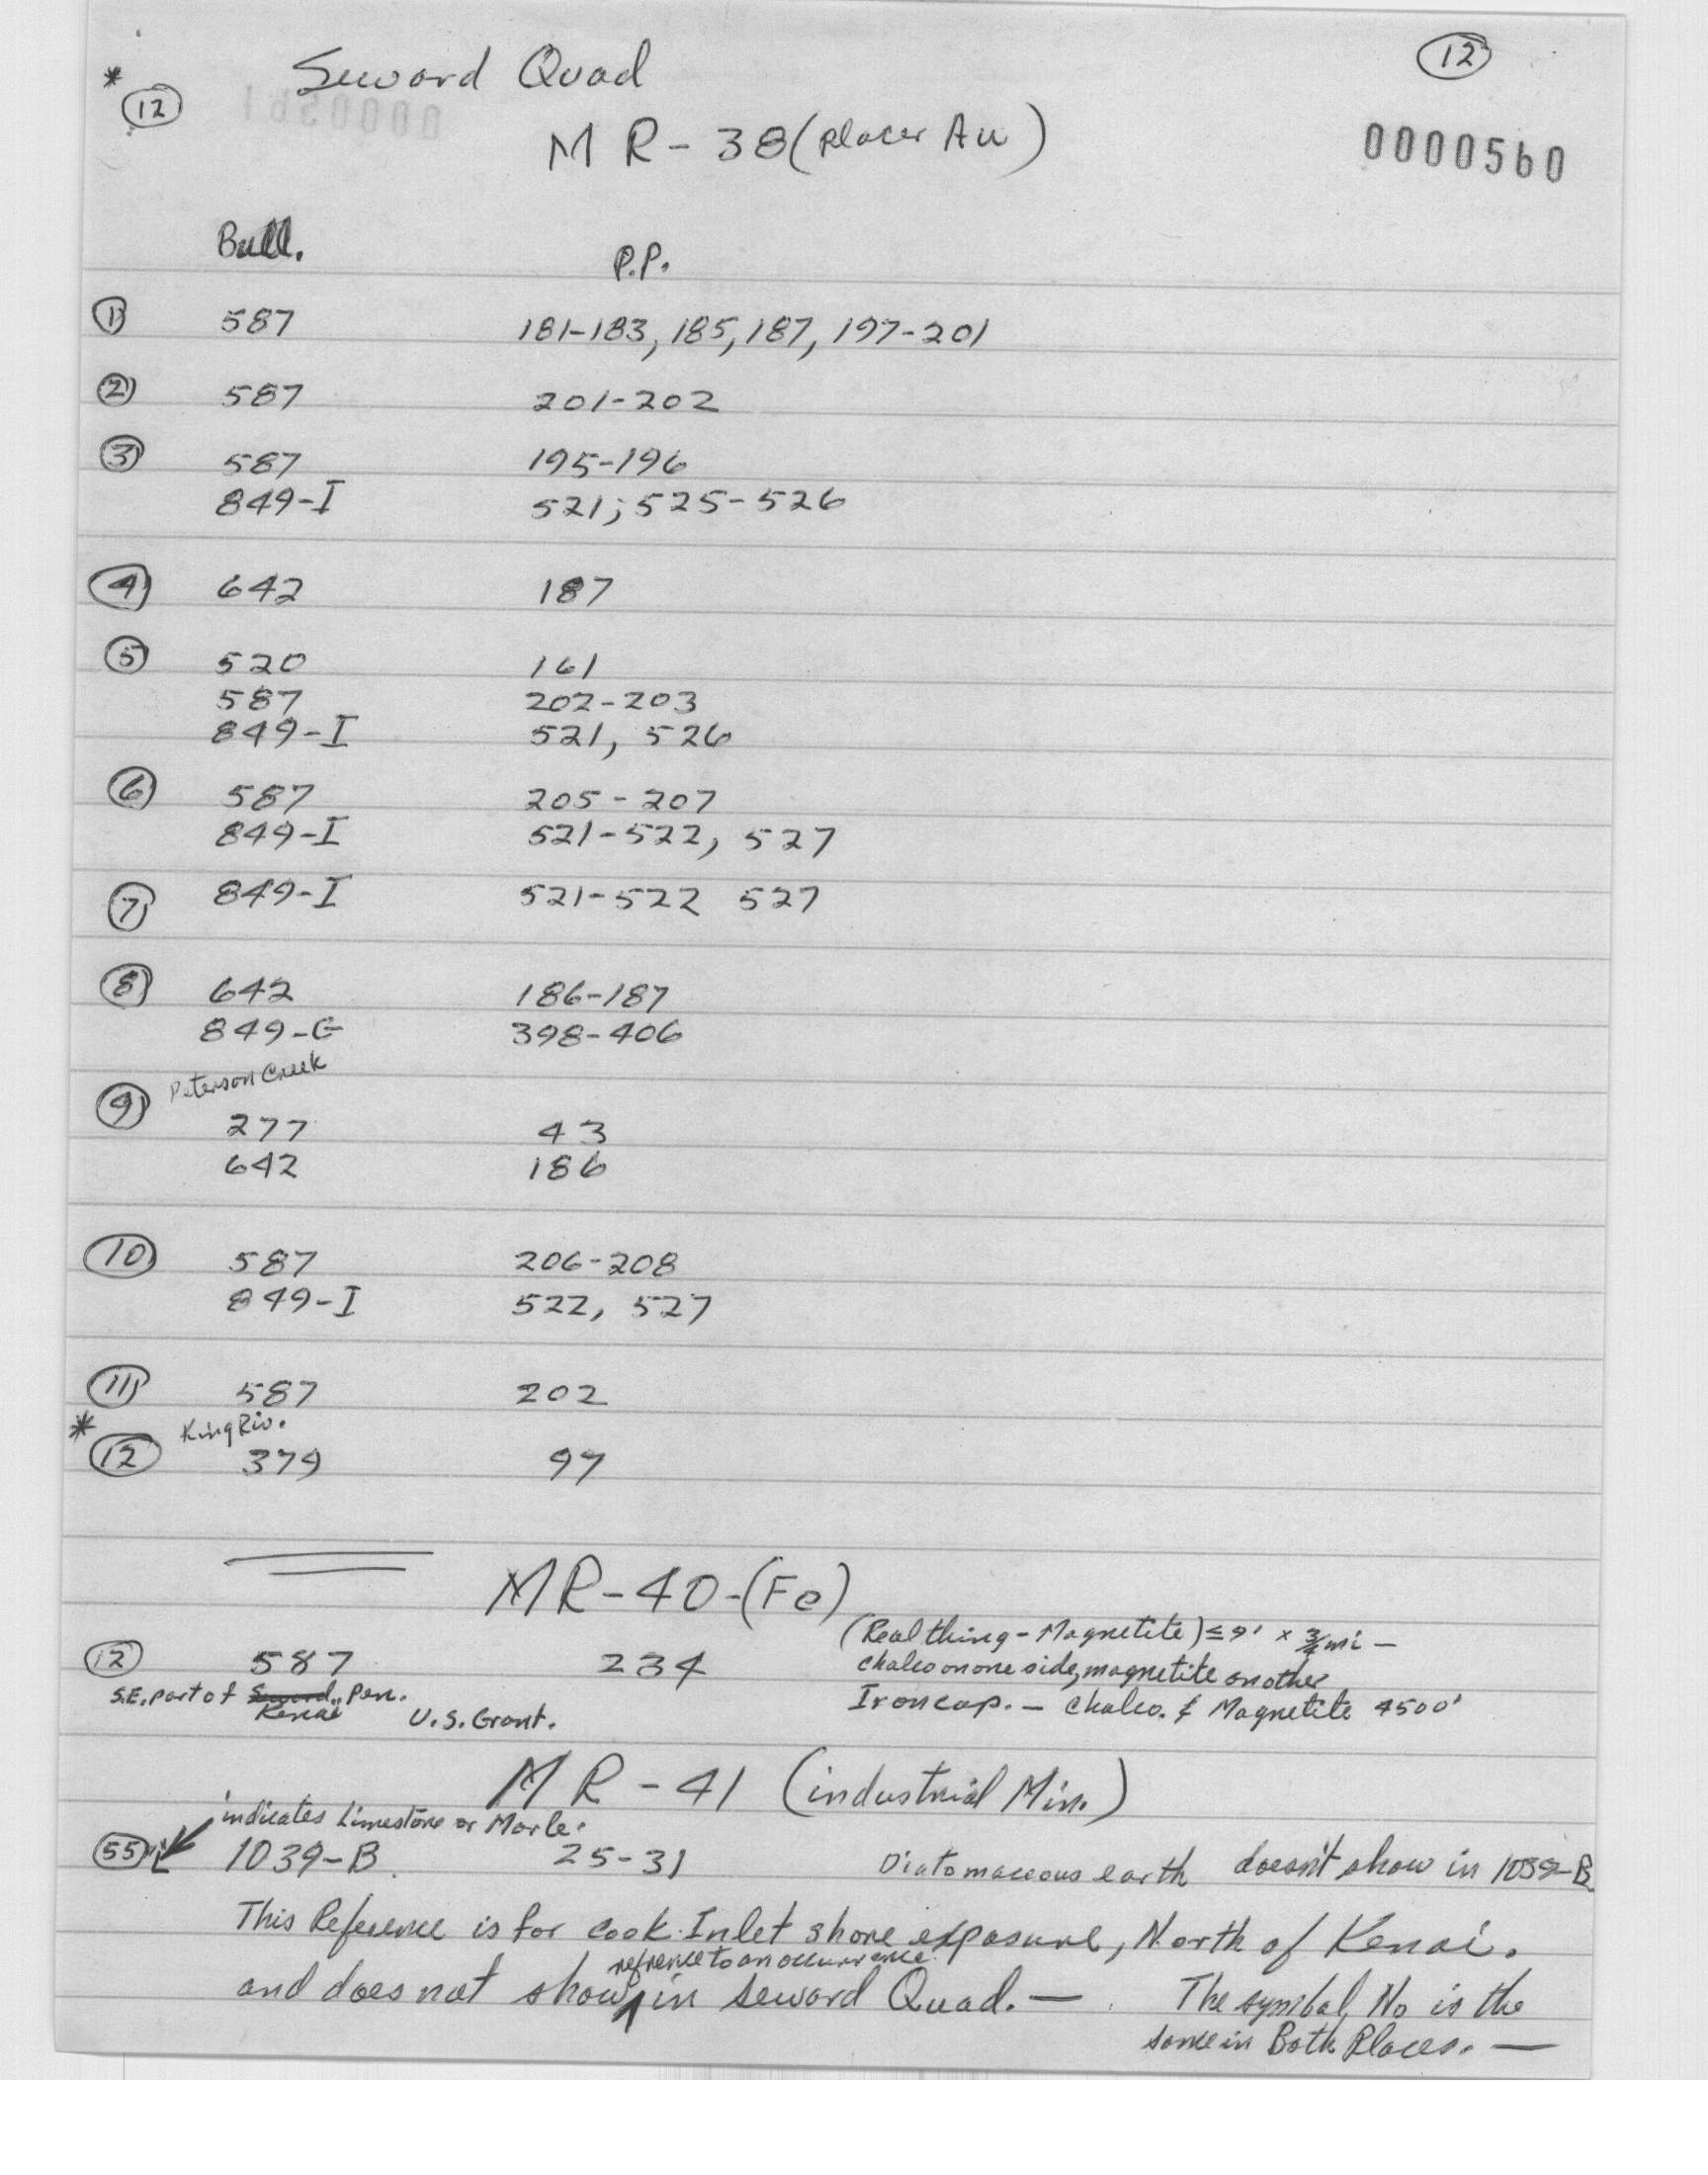 * Seward Quad ⑫
⑫ 0000561
MR-38 (Placer Au) 0000560
Bull. P.P.
① 587 181-183, 185, 187, 197-201
② 587 201-202
③ 587 195-196
849-I 521; 525-526
④ 642 187
⑤ 520 161
587 202-203
849-I 521, 526
⑥ 587 205-207
849-I 521-522, 527
⑦ 849-I 521-522 527
⑧ 642 186-187
849-G 398-406
⑨ Peterson Creek
277 43
642 186
⑩ 587 206-208
849-I 522, 527
⑪ 587 202
* King Riv.
⑫ 379 97
MR-40-(Fe)
(Real thing - Magnetite) ≤ 9' x 3/4 mi -
⑫ 587 234 chalco on one side, magnetite on other
S.E. part of Seward Pen. Iron cap. - Chalco. & Magnetite 4500'
Kenai U.S. Grant.
MR-41 (industrial Min.)
indicates Limestone or Marle.
55 L 1039-B. 25-31 Diatomaceous earth doesn't show in 1039-B
This Reference is for Cook Inlet shore exposure, North of Kenai.
refrence to an occurrence
and does not show in Seward Quad. — The symbol, No is the
same in Both Places. —